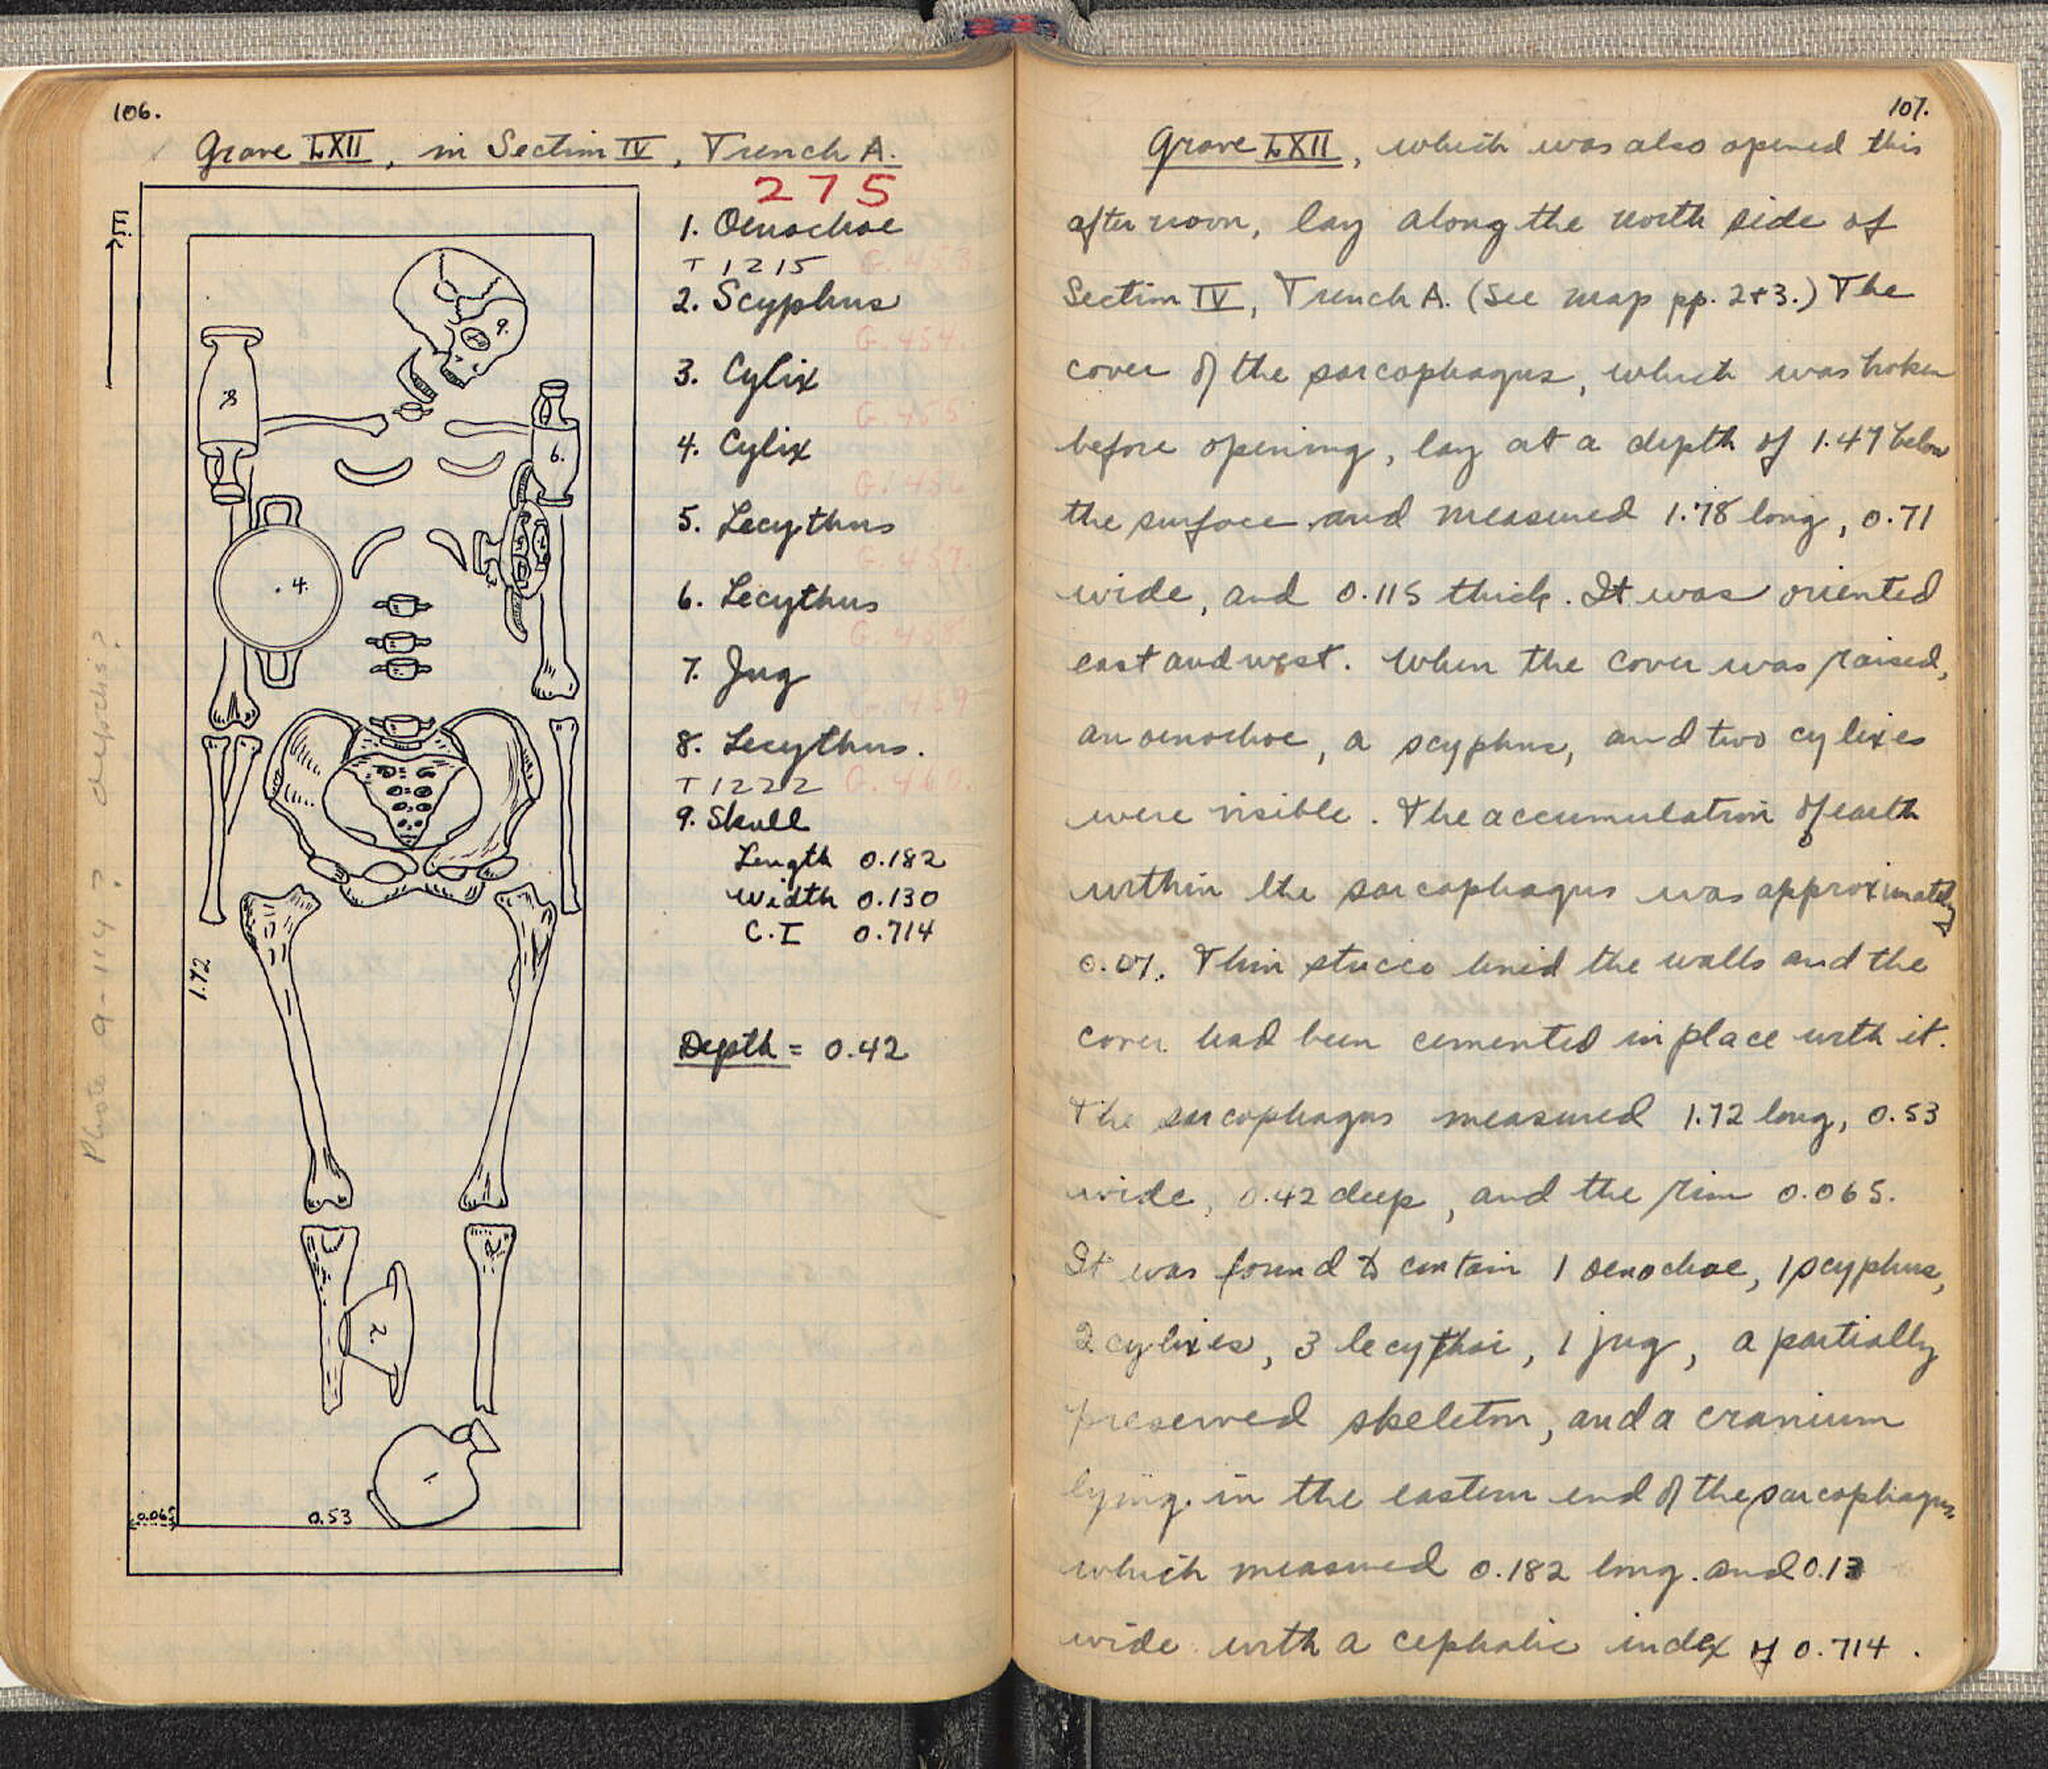 106.
Grave LXII, in Section IV, Trench A.
275
E.
1. Oenochoe
T 1215 G. 453.
2. Scyphus
G. 454.
3. Cylix
G. 455
4. Cylix
G. 456
5. Lecythus
G. 457
6. Lecythus
G. 458
7. Jug
G. 459
8. Lecythus.
T 1222 G. 460.
9. Skull
Length 0.182
Width 0.130
C.I 0.714
Depth = 0.42
9.
8
6.
5
7
3
4.
2.
1.
1.72
0.065
0.53
Photo 9-114? depicts?
107.
Grave LXII, which was also opened this
afternoon, lay along the north side of
Section IV, Trench A. (See map pp. 2+3.) The
cover of the sarcophagus, which was broken
before opening, lay at a depth of 1.47 below
the surface and measured 1.78 long, 0.71
wide, and 0.115 thick. It was oriented
east and west. When the cover was raised,
an oenochoe, a scyphus, and two cylixes
were visible. The accumulation of earth
within the sarcophagus was approximately
0.07. Thin stucco lined the walls and the
cover had been cemented in place with it.
The sarcophagus measured 1.72 long, 0.53
wide, 0.42 deep, and the rim 0.065.
It was found to contain 1 oenochoe, 1 scyphus,
2 cylixes, 3 lecythoi, 1 jug, a partially
preserved skeleton, and a cranium
lying in the eastern end of the sarcophagus
which measured 0.182 long. and 0.13
wide with a cephalic index of 0.714.